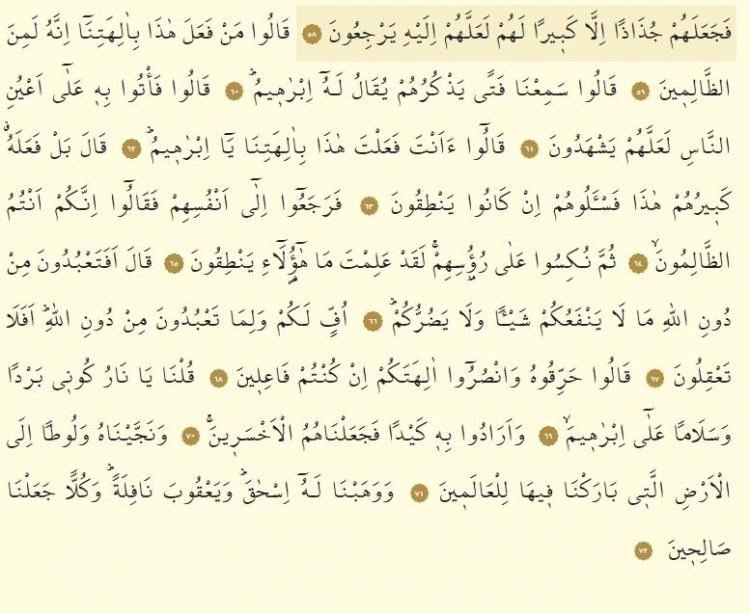 فَجَعَلَهُمْ جُذَاذًا اِلَّا كَب۪يرًا لَهُمْ لَعَلَّهُمْ اِلَيْهِ يَرْجِعُونَ ٥٨ قَالُوا مَنْ فَعَلَ هٰذَا بِاٰلِهَتِنَٓا اِنَّهُ لَمِنَ
الظَّالِم۪ينَ ٥٩ قَالُوا سَمِعْنَا فَتًى يَذْكُرُهُمْ يُقَالُ لَهُٓ اِبْرٰه۪يمُۜ ٦٠ قَالُوا فَأْتُوا بِه۪ عَلٰٓى اَعْيُنِ
النَّاسِ لَعَلَّهُمْ يَشْهَدُونَ ٦١ قَالُٓوا ءَاَنْتَ فَعَلْتَ هٰذَا بِاٰلِهَتِنَا يَٓا اِبْرٰه۪يمُۜ ٦٢ قَالَ بَلْ فَعَلَهُۗ
كَب۪يرُهُمْ هٰذَا فَسْـَٔلُوهُمْ اِنْ كَانُوا يَنْطِقُونَ ٦٣ فَرَجَعُٓوا اِلٰٓى اَنْفُسِهِمْ فَقَالُٓوا اِنَّكُمْ اَنْتُمُ
الظَّالِمُونَۙ ٦٤ ثُمَّ نُكِسُوا عَلٰى رُؤُ۫سِهِمْۚ لَقَدْ عَلِمْتَ مَا هٰٓؤُ۬لَٓاءِ يَنْطِقُونَ ٦٥ قَالَ اَفَتَعْبُدُونَ مِنْ
دُونِ اللّٰهِ مَا لَا يَنْفَعُكُمْ شَيْـًٔا وَلَا يَضُرُّكُمْۜ ٦٦ اُفٍّ لَكُمْ وَلِمَا تَعْبُدُونَ مِنْ دُونِ اللّٰهِۜ اَفَلَا
تَعْقِلُونَ ٦٧ قَالُوا حَرِّقُوهُ وَانْصُرُٓوا اٰلِهَتَكُمْ اِنْ كُنْتُمْ فَاعِل۪ينَ ٦٨ قُلْنَا يَا نَارُ كُون۪ي بَرْدًا
وَسَلَامًا عَلٰٓى اِبْرٰه۪يمَۙ ٦٩ وَاَرَادُوا بِه۪ كَيْدًا فَجَعَلْنَاهُمُ الْاَخْسَر۪ينَۚ ٧٠ وَنَجَّيْنَاهُ وَلُوطًا اِلَى
الْاَرْضِ الَّت۪ي بَارَكْنَا ف۪يهَا لِلْعَالَم۪ينَ ٧١ وَوَهَبْنَا لَهُٓ اِسْحٰقَۜ وَيَعْقُوبَ نَافِلَةًۜ وَكُلًّا جَعَلْنَا
صَالِح۪ينَ ٧٢